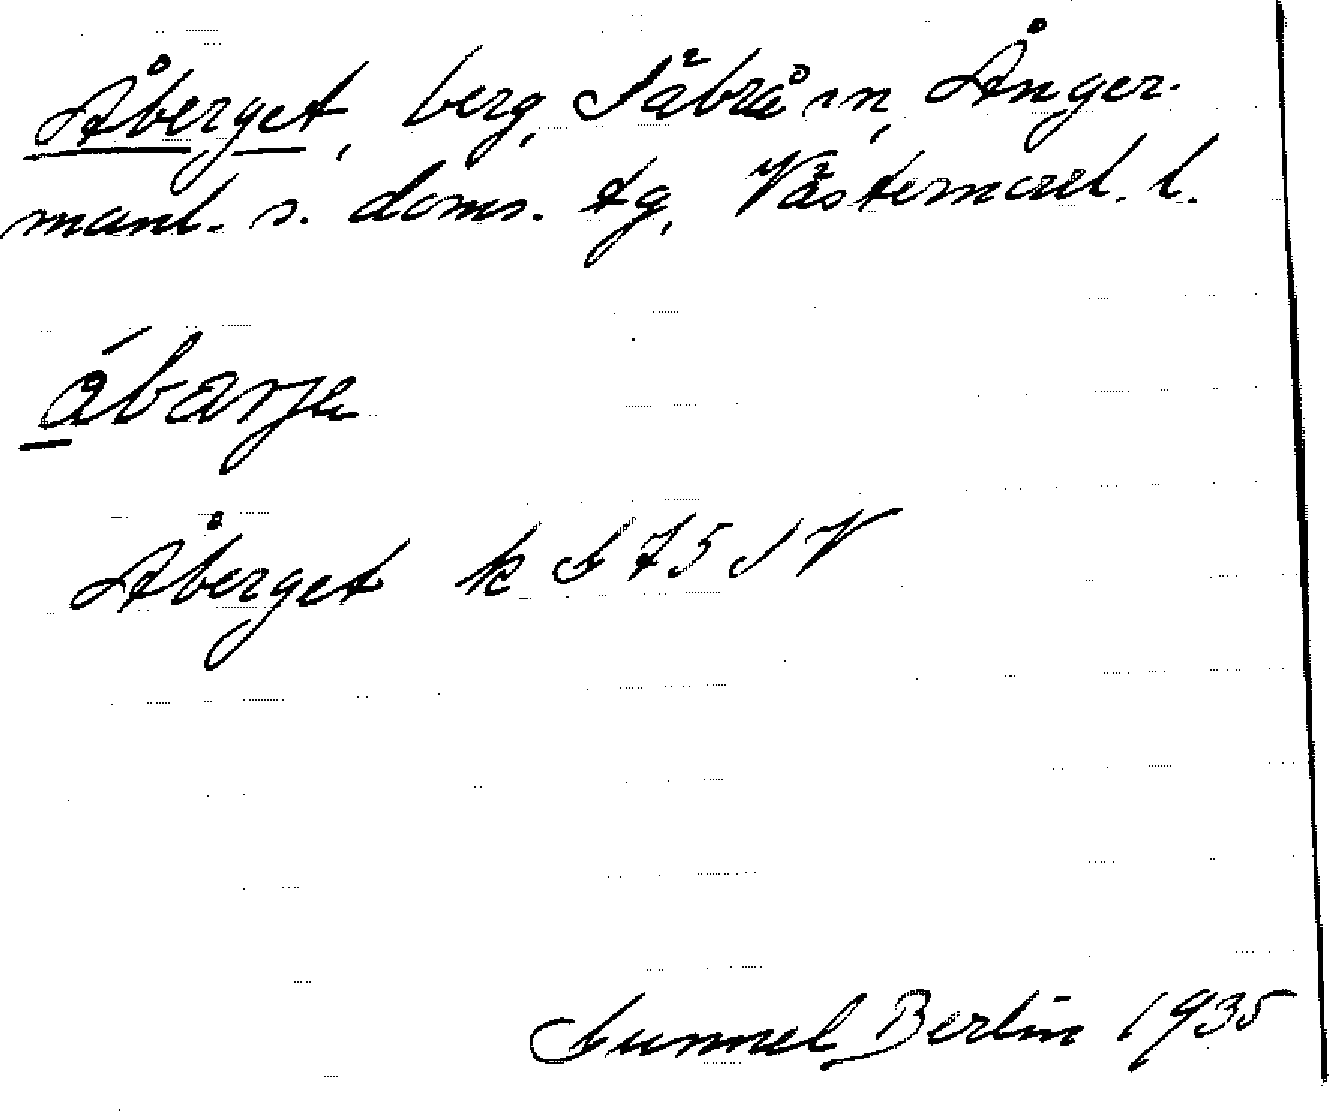 Åberget, berg, Säbrå sn, Ånger-
manl. s. doms. tg, Västernorrl. l.
ábarje
Åberget k S 75 SV
Gunnel Berlin 1935